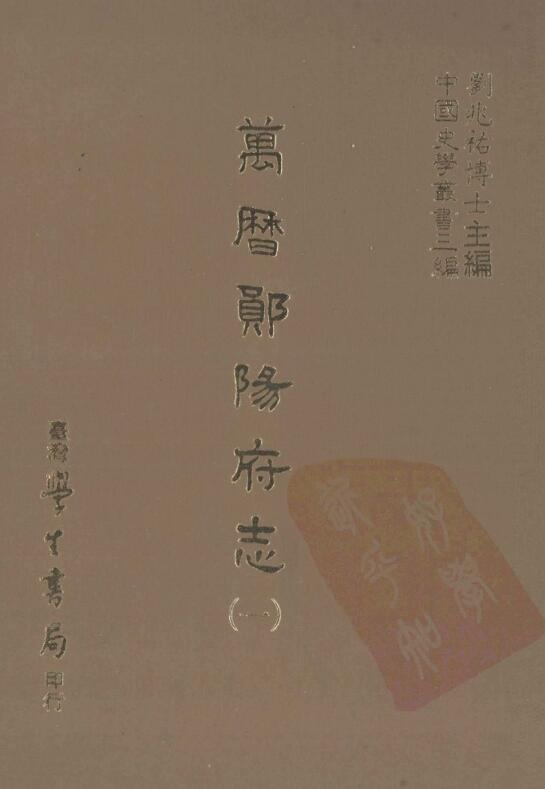 劉兆祐博士主編
中國史學叢書三編
萬曆鄖陽府志(一)
臺灣學生書局印行